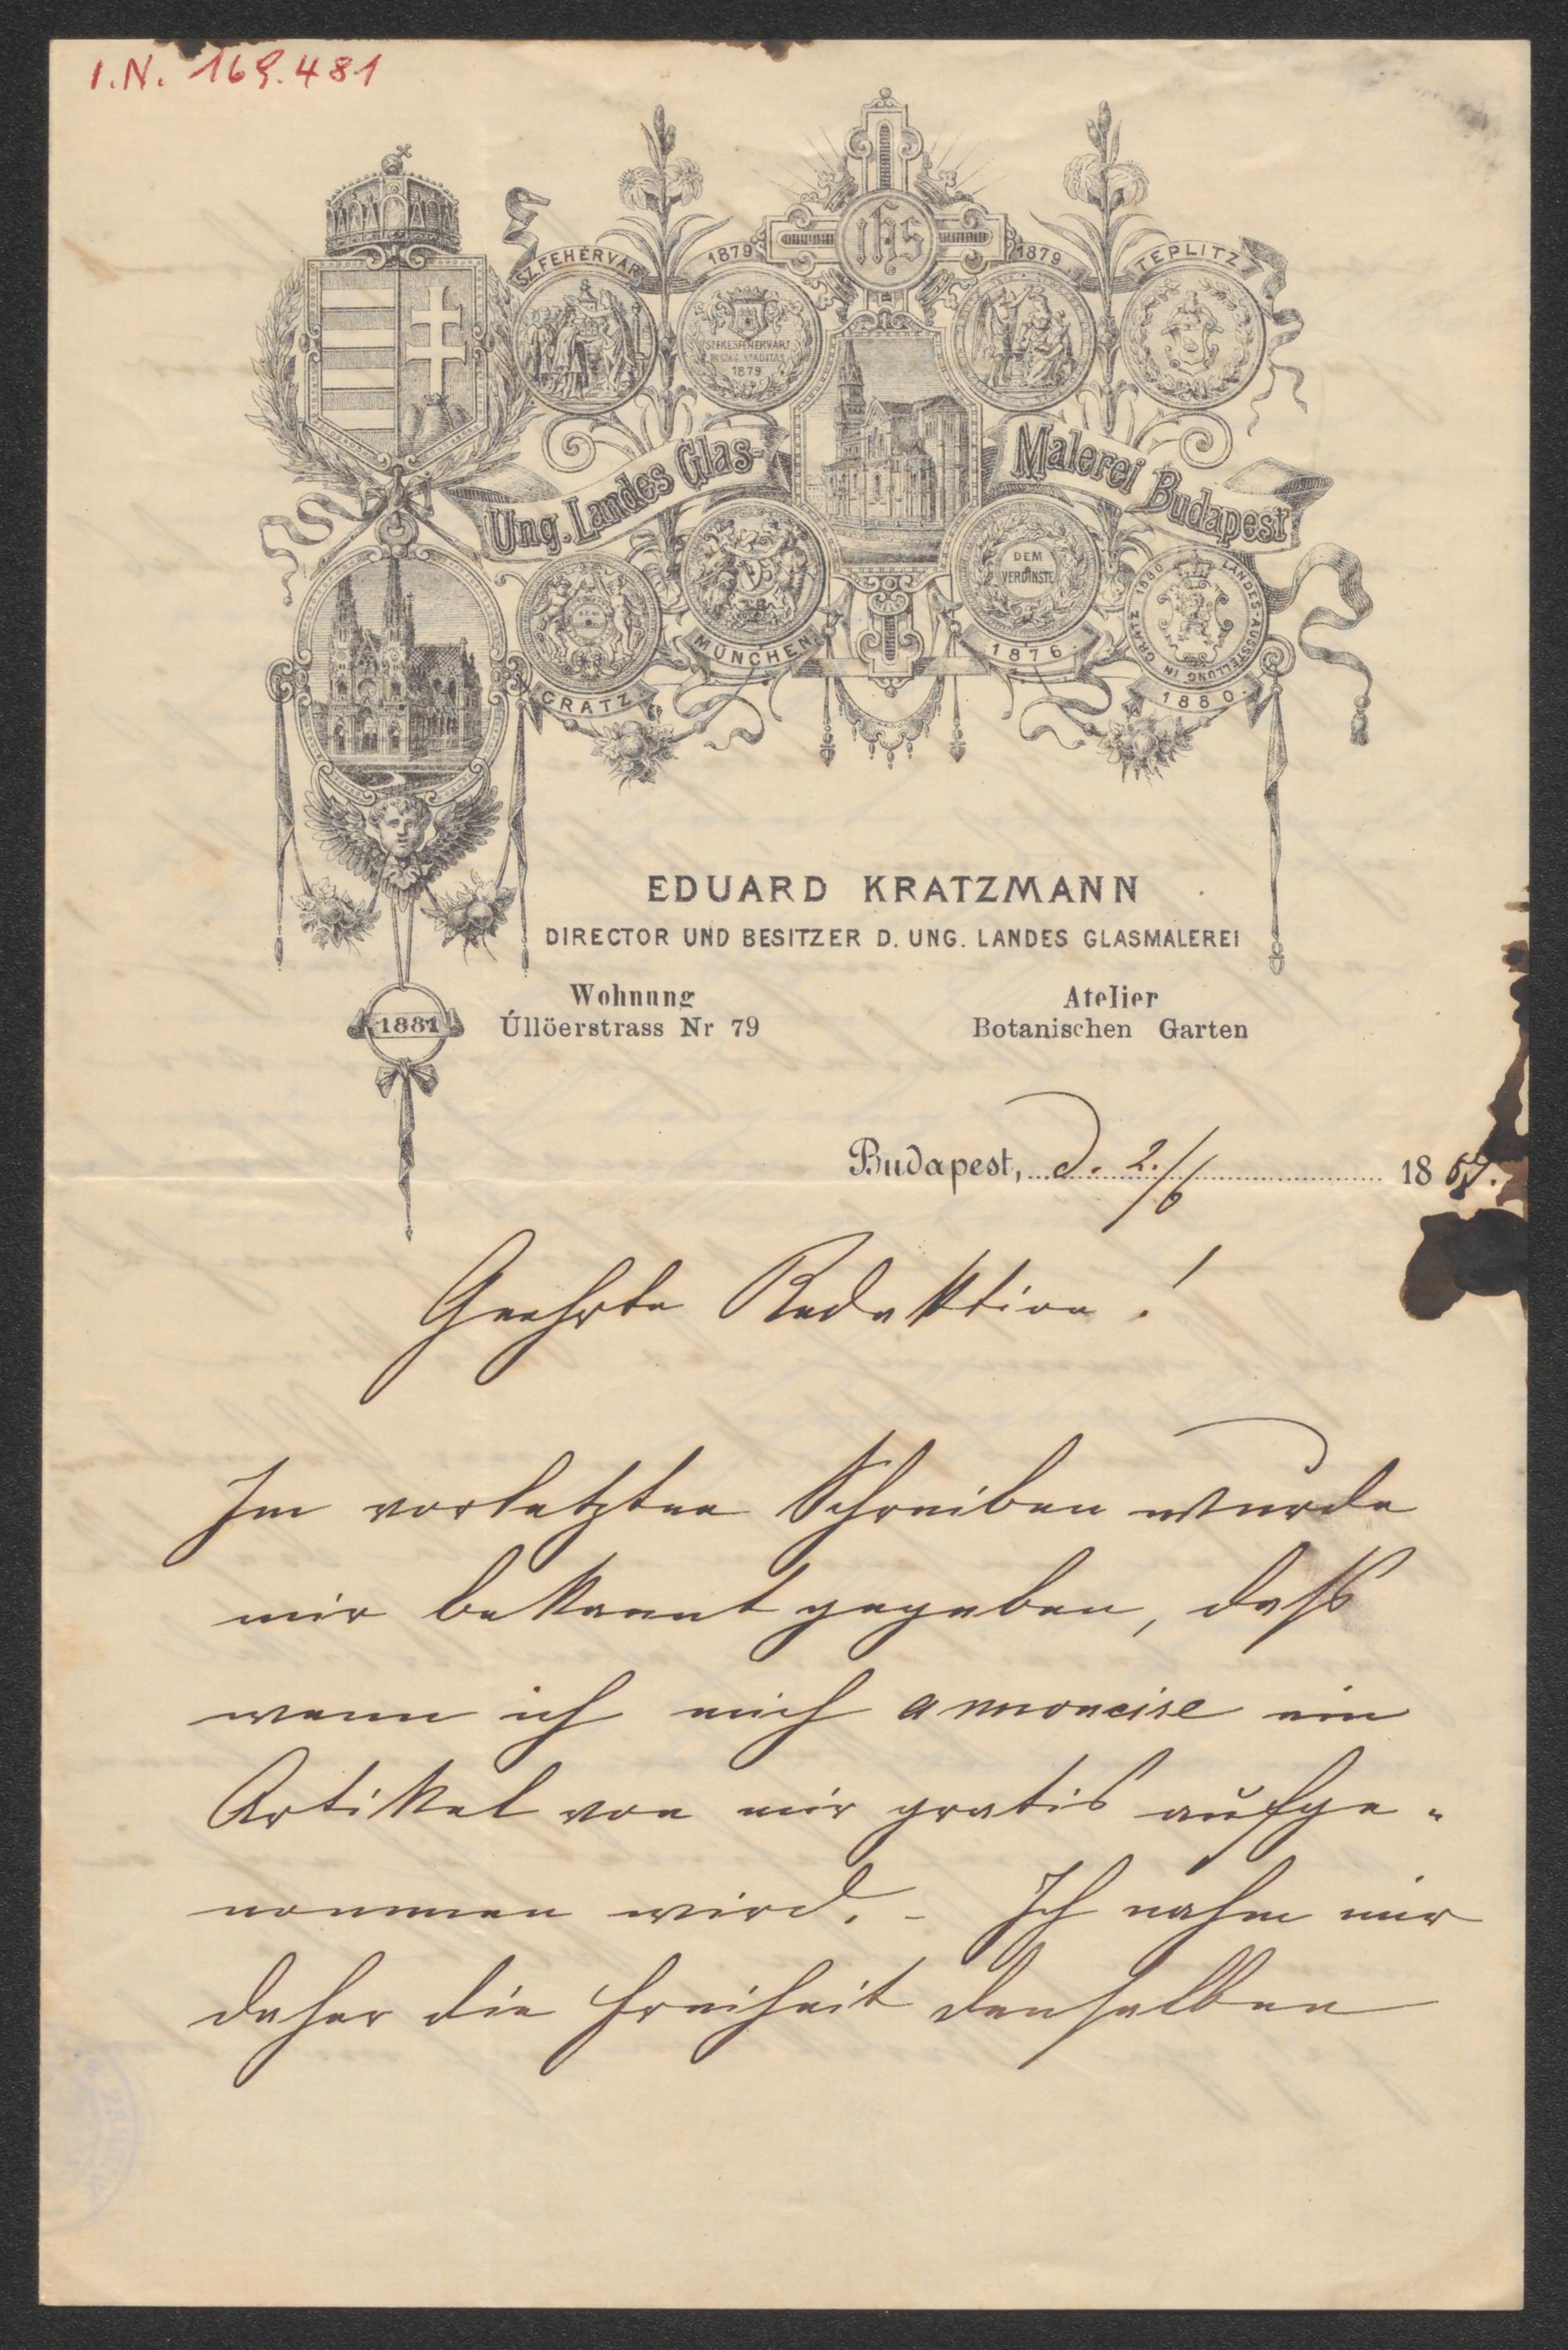 I.N. 169.481
ihs
SZ.FEHÉRVÁR
1879
1879
TEPLITZ
SZÉKESFEHÉRVÁRI
1879
Ung. Landes Glas-
Malerei Budapest
DEM
VERDINSTE
LANDES-AUSSTELLUNG IN GRATZ 1880
GRATZ
MÜNCHEN
1876
1880.
EDUARD KRATZMANN
DIRECTOR UND BESITZER D. UNG. LANDES GLASMALEREI
Wohnung
Úllöerstrass Nr 79
Atelier
Botanischen Garten
1881
Budapest, d. 2./6 18
Geehrte Redaktion!
Im vorletzten Schreiben wurde
mir bekannt gegeben, daß
wenn ich mich annoncire ein
Artikel von mir gratis aufge-
nommen wird. – Ich nahm mir
daher die Freiheit denselben